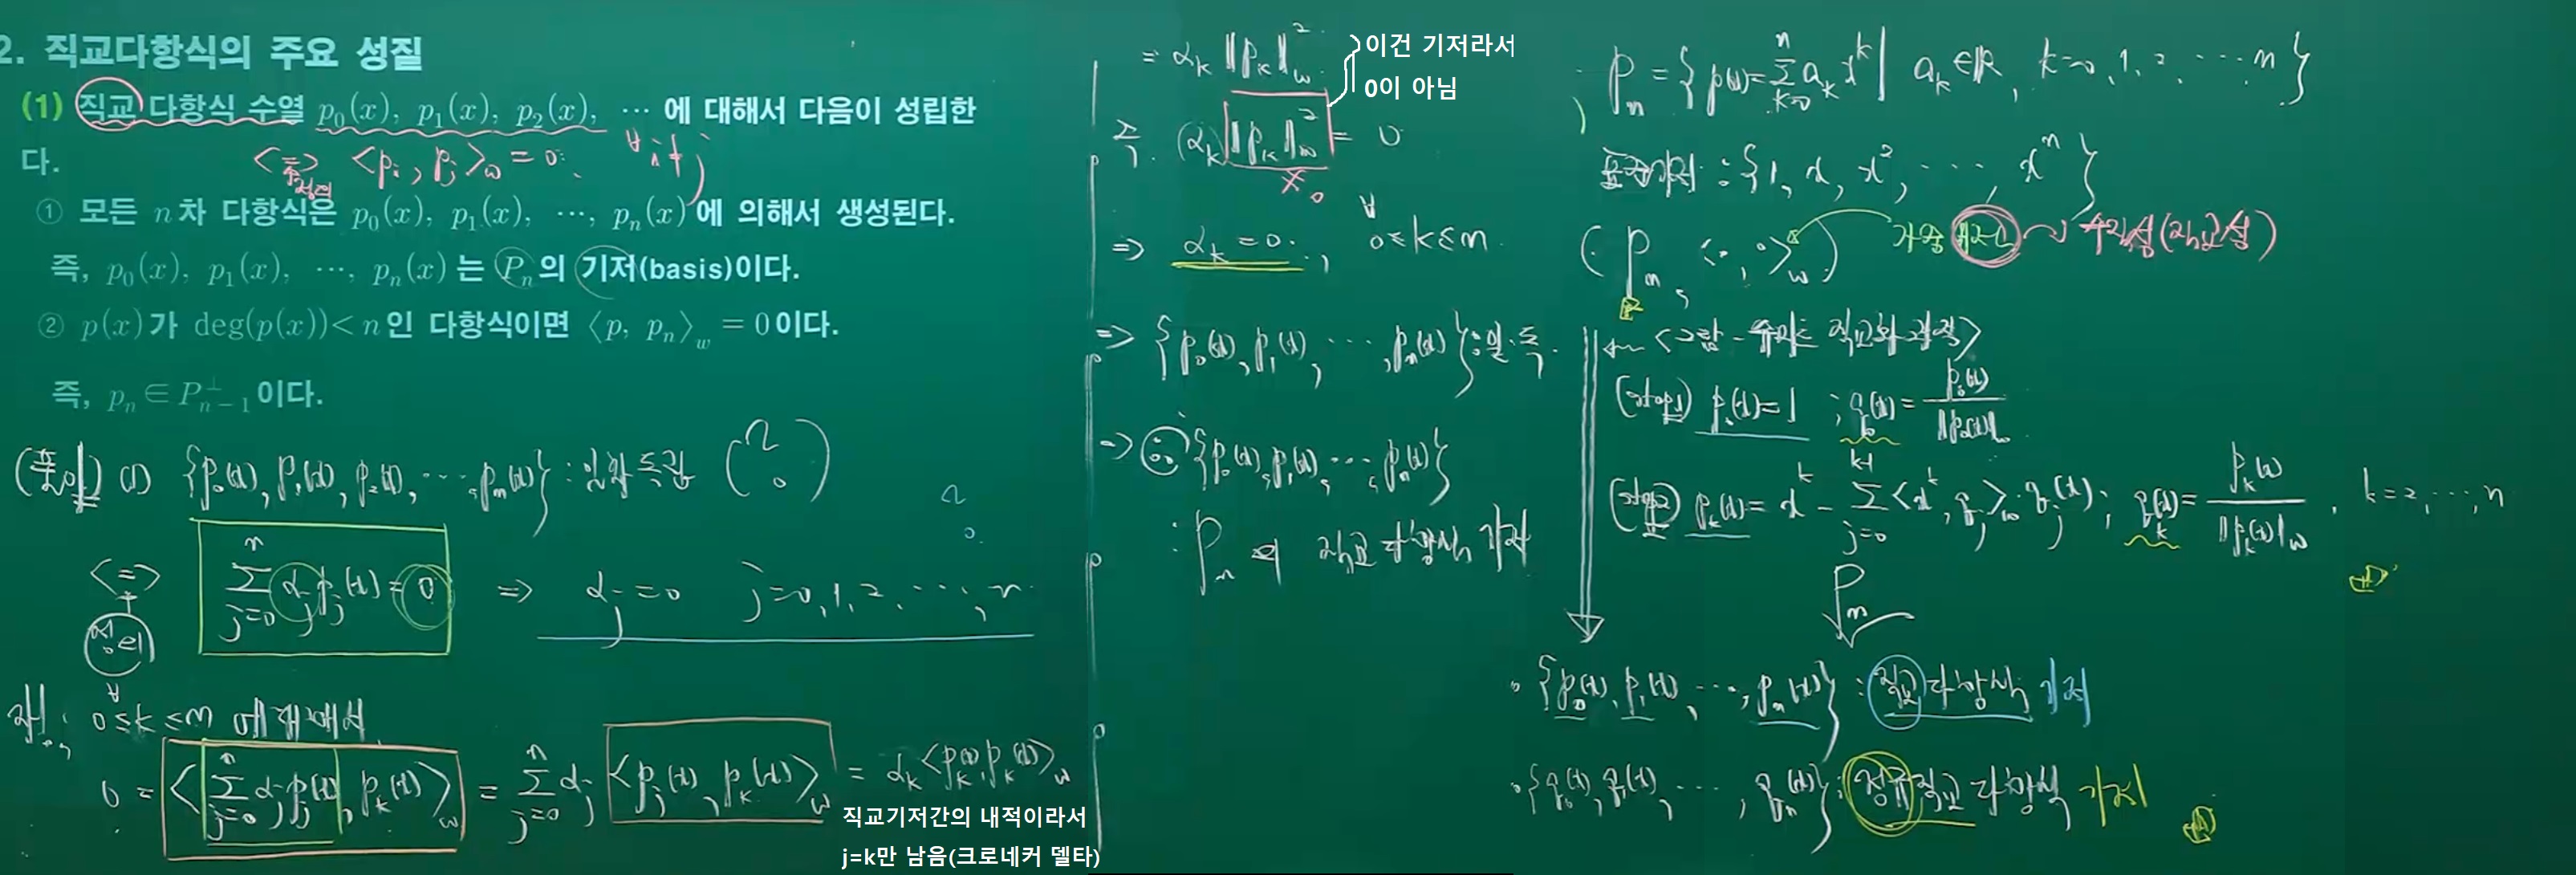 2. 직교다항식의 주요 성질
(1) 직교 다항식 수열 p₀(x), p₁(x), p₂(x), ⋯ 에 대해서 다음이 성립한
다.
<=> <pᵢ, pⱼ>_w = 0. ∀i≠j
① 모든 n차 다항식은 p₀(x), p₁(x), ⋯, pₙ(x)에 의해서 생성된다.
즉, p₀(x), p₁(x), ⋯, pₙ(x)는 Pₙ의 기저(basis)이다.
② p(x)가 deg(p(x))< n인 다항식이면 ⟨p, pₙ⟩_w = 0이다.
즉, pₙ ∈ P^⊥_{n-1}이다.
(풀이) (1) {p₀(x), p₁(x), p₂(x), ⋯, pₙ(x)} : 일차독립
<=> Σ_{j=0}^{n} αⱼpⱼ(x) = 0 => αⱼ = 0 j=0, 1, 2, ⋯, n
정의
0≤∀k≤n 에 대해서
0 = <Σ_{j=0}^{n} αⱼpⱼ(x), pₖ(x)>_w = Σ_{j=0}^{n} αⱼ <pⱼ(x), pₖ(x)>_w = αₖ<pₖ(x), pₖ(x)>_w
직교기저간의 내적이라서
j=k만 남음(크로네커 델타)
= αₖ ‖pₖ‖²_w
이건 기저라서
0이 아님
즉. αₖ ‖pₖ‖²_w = 0
≠0
=> αₖ = 0., 0≤∀k≤n.
=> {p₀(x), p₁(x), ⋯, pₙ(x)} : 일.독.
=> {p₀(x), p₁(x), ⋯, pₙ(x)}
: Pₙ의 직교다항식 기저
Pₙ = {p(x)=Σ_{k=0}^{n} aₖxᵏ | aₖ∈ℝ, k=0, 1, 2, ⋯, n}
표준기저 : {1, x, x², ⋯ xⁿ}
(Pₙ, <·,·>_w) 가중내적 → 수직성(직교성)
← <그람-슈미트 직교화 과정>
(step1) p₀(x)=1 ; q₀(x) = p₀(x)/‖p₀(x)‖_w
(step2) pₖ(x) = xᵏ - Σ_{j=0}^{k-1} <xᵏ, qⱼ>_w qⱼ(x) ; qₖ(x) = pₖ(x)/‖pₖ(x)‖_w, k=2, ⋯, n
Pₙ
· {p₀(x), p₁(x), ⋯, pₙ(x)} : 직교다항식 기저
· {q₀(x), q₁(x), ⋯, qₙ(x)} : 정규직교 다항식 기저